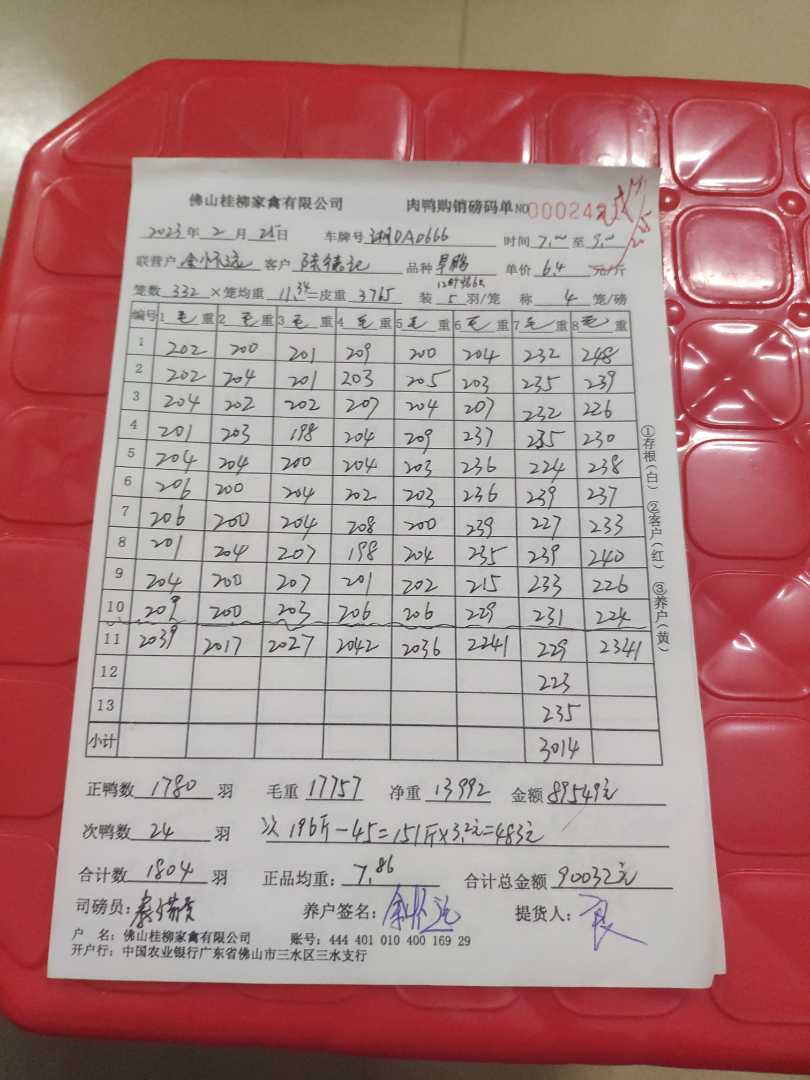 佛山桂柳家禽有限公司 肉鸭购销磅码单 NO 000024
2023年2月25日 车牌号 湘DA0666 时间 7:00 至 9:00
联营户 余怀远 客户 陈德记 品种 早鸭 单价 6.4 元/斤
笼数 332 ×笼均重 11.34 =皮重 3765 装 5 羽/笼 称 4 笼/磅
编号 1毛重 2毛重 3毛重 4毛重 5毛重 6毛重 7毛重 8毛重
1 202 200 201 209 200 204 232 248
2 202 204 201 203 205 203 235 239
3 204 202 202 207 204 207 232 226
4 201 203 198 204 209 237 235 230
5 204 204 200 204 203 236 224 238
6 206 200 204 202 203 236 239 237
7 206 200 204 208 200 239 227 233
8 201 204 207 198 204 235 239 240
9 204 200 207 201 202 215 233 226
10 209 200 203 206 206 229 231 224
11 2039 2017 2027 2042 2036 2241 229 2341
12 223
13 235
小计 3014
正鸭数 1780 羽 毛重 17757 净重 13992 金额 89549元
次鸭数 24 羽 次196斤-45=151斤×3.2元=483元
合计数 1804 羽 正品均重: 7.86 合计总金额 90032元
司磅员: 养户签名: 提货人:
户 名: 佛山桂柳家禽有限公司 账号: 444 401 010 400 169 29
开户行: 中国农业银行广东省佛山市三水区三水支行
①存根(白) ②客户(红) ③养户(黄)